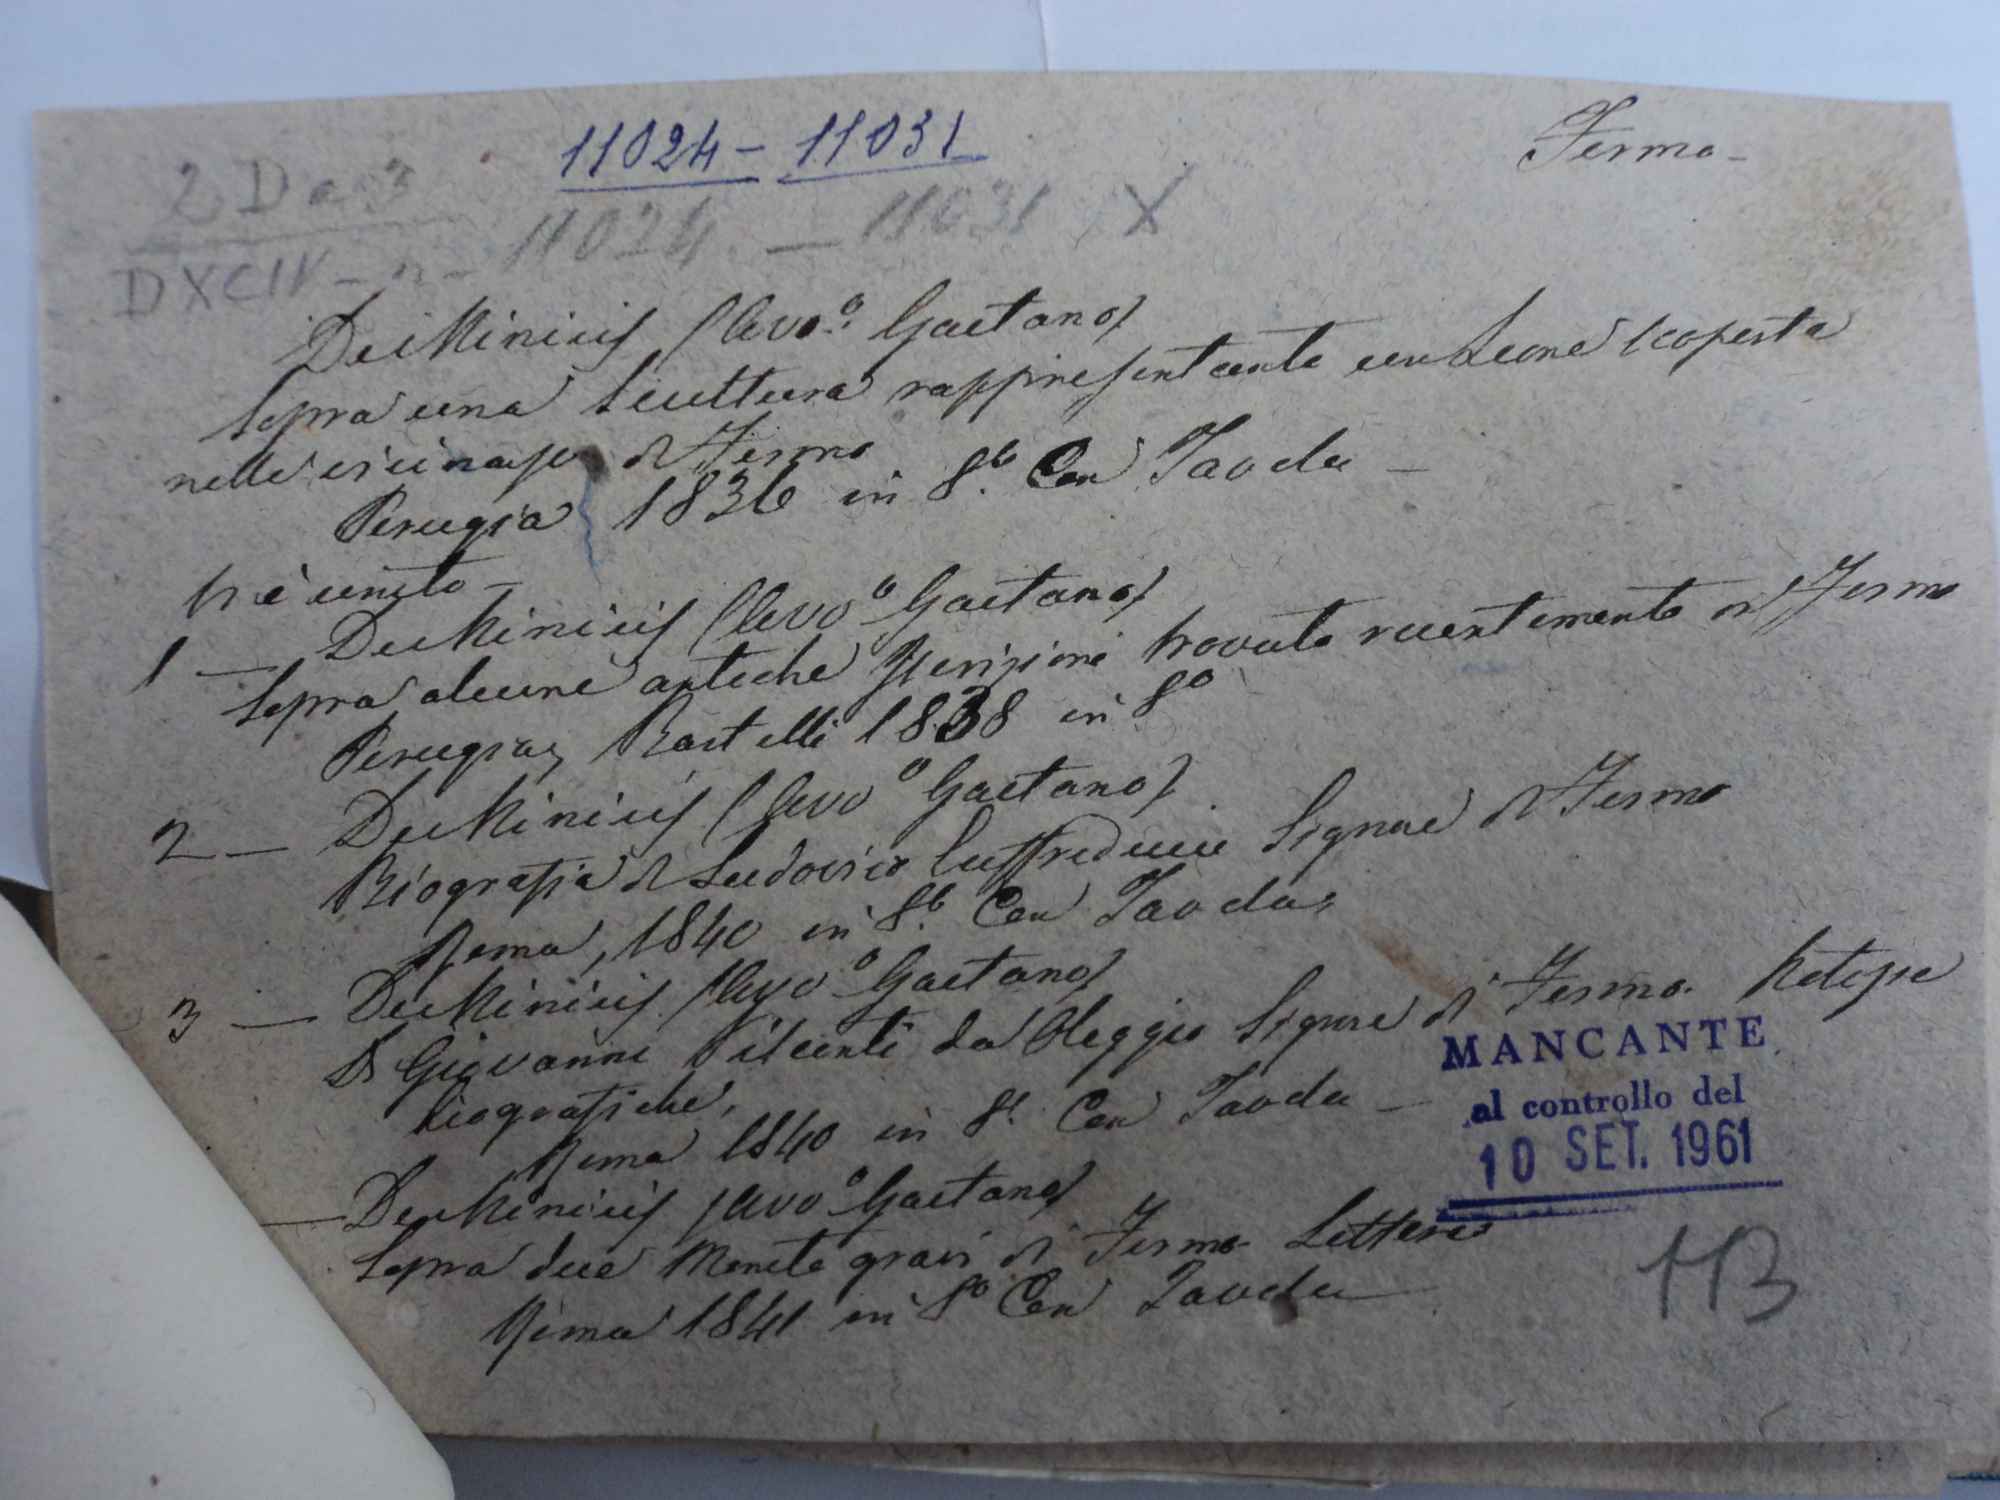 11024 - 11031
Fermo -
2 D a 3
DXCIV - n - 11024 - 11031 X
De Minicis (Avv.o Gaetano)
Sopra una Scultura rappresentante un Leone scoperta
nelle vicinanze di Fermo
Perugia 1836 in 8.o Con Tavole -
Vi è unito -
1 - De Minicis (Avvo Gaetano)
Sopra alcune antiche Iscrizioni trovate recentemente in Fermo
Perugia, Bartelli 1838 in 8o
2 - De Minicis (Avvo Gaetano)
Biografia di Ludovico Euffreducci Signore di Fermo
Roma, 1840 in 8.o Con Tavola,
3 - De Minicis (Avvo Gaetano)
Di Giovanni Visconti da Oleggio Signore di Fermo. Notizie
biografiche,
Roma 1840 in 8.o Con Tavola -
- De Minicis (Avvo Gaetano)
Sopra due Monete gravi di Fermo Lettere
Roma 1841 in 8o Con Tavola -
MANCANTE
al controllo del
10 SET. 1961